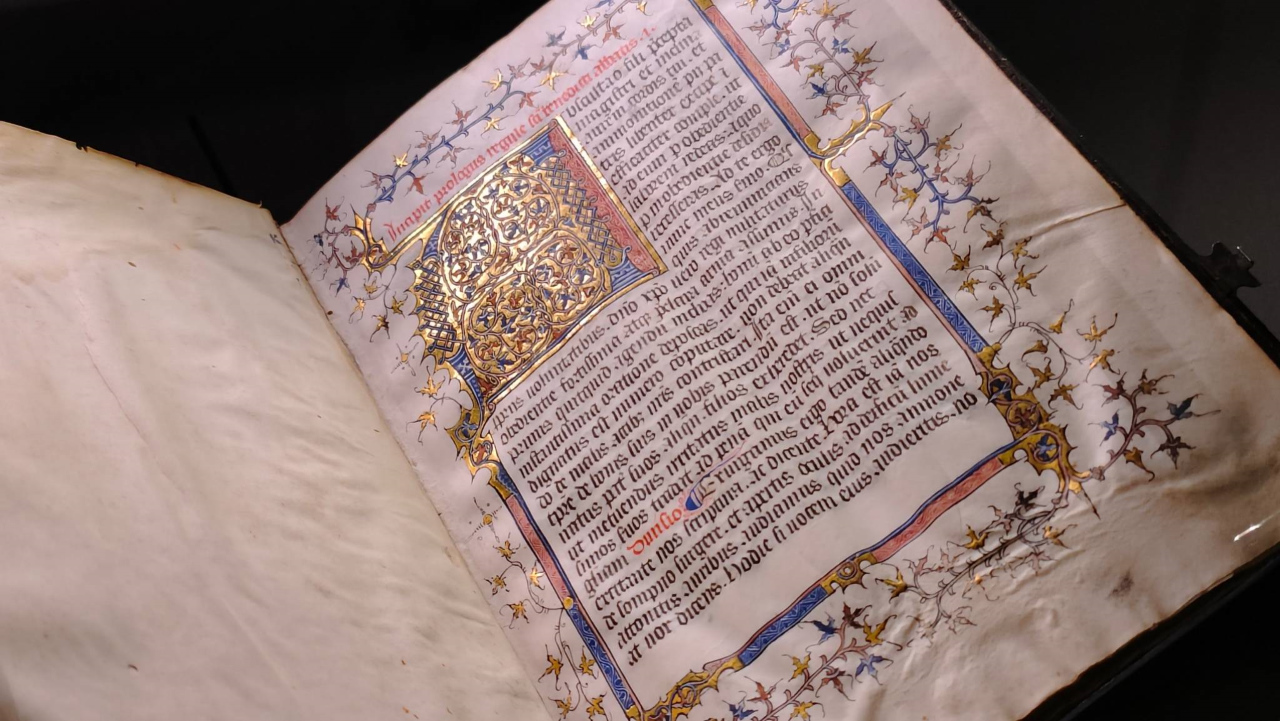 Incipit prologus regule sci benedicti abbatis. 1.
osculta. o fili pcepta
magistri et inclina
aurem cordis tui et
ammonitione pii pa
tris libenter excipe. et
efficaciter comple. ut
ad eum p obedientie
laborem redeas. a quo
p inobedientie desidiā
recesseras. Ad te ergo
nunc meus smo diri
quis abrenuncians
prijs voluntatibus. dño xp̄o uero regi militaturus
obedientie fortissima atq; pclara arma assumis. In
primis ut quicquid agendū inchoas bonū ab eo pfici
instantissima oratione deposcas. ut qui iā in filiorū
dignatus est numero cōputare. non debeat aliqñ
de malis actib; nr̄is contristari. Ita eni ei omni
tpr̄e de bonis suis in nobis parendū est. ut nō solū
iratus pr̄ suos aliqñ filios exheredet. Sed nec
ut metuendus irritatus malis nostris ut nequiss
simos suos tradat ad penā qui eū seq̄ noluerint ad
gliam Divisio Exurgamus ergo tandē aliquādo
excitante nos scriptura. ac dicente Hora est iā nos
de sompno surgere. et apertis oculis ad deificū lumē
attonitis auribus. audiamus quid nos ammone
at vox dicens. Hodie si vocem eius audieritis. no